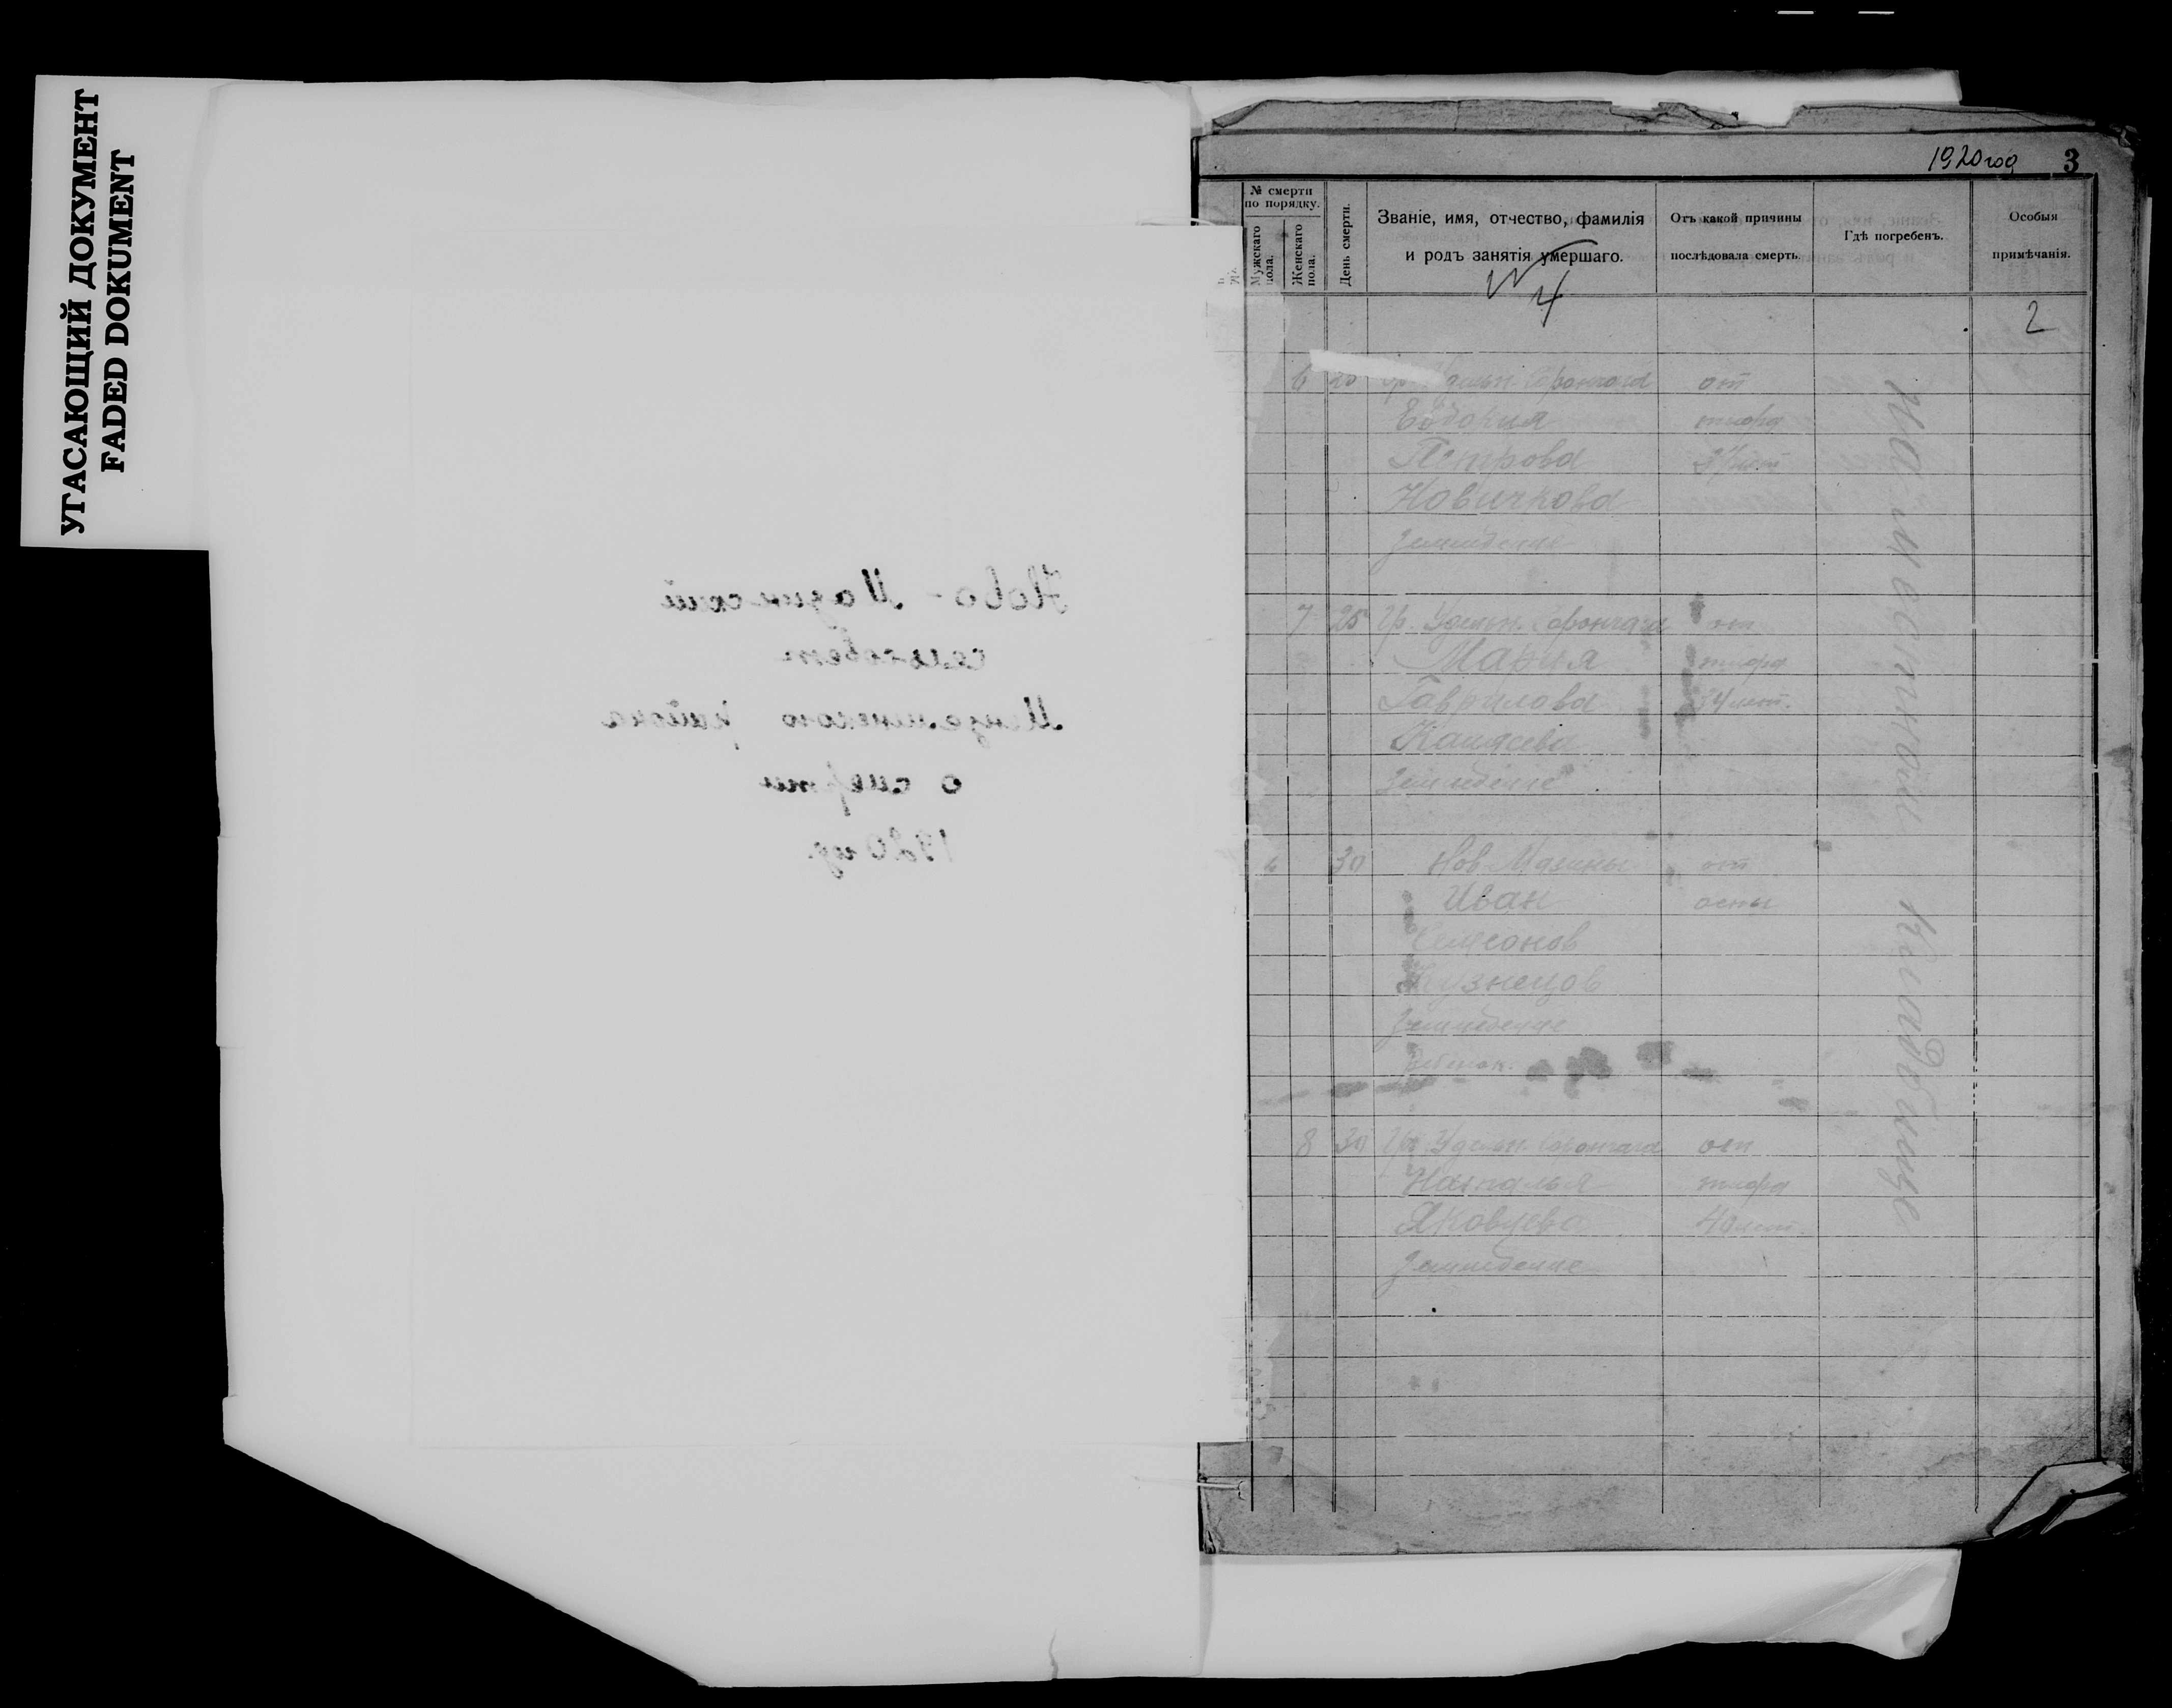 УГАСАЮЩИЙ ДОКУМЕНТ
FADED DOKUMENT
Ново-Мазинский
сельсовет
Мензелинского района
о смерти
1920 год.
1920 год 3
№ смерти по порядку.
Мужскаго пола.
Женскаго пола.
День смерти.
Званіе, имя, отчество, фамилія
и родъ занятія умершаго.
Отъ какой причины
послѣдовала смерть.
Гдѣ погребенъ.
Особыя
примѣчанія.
4
2
6 от
тифа
Петрова
Новичкова
Земледелие
7 25 Гр. Удельн. от
Мария тифа
Гаврилова 34 лет.
Земледелие
30 Нов. Мазины от
Иван оспы
Симеонов
Кузнецов
Земледелие
8 30 Гр. Удельн. от
Наталья тифа
Яковлева 40 лет.
Земледелие
На местном кладбище